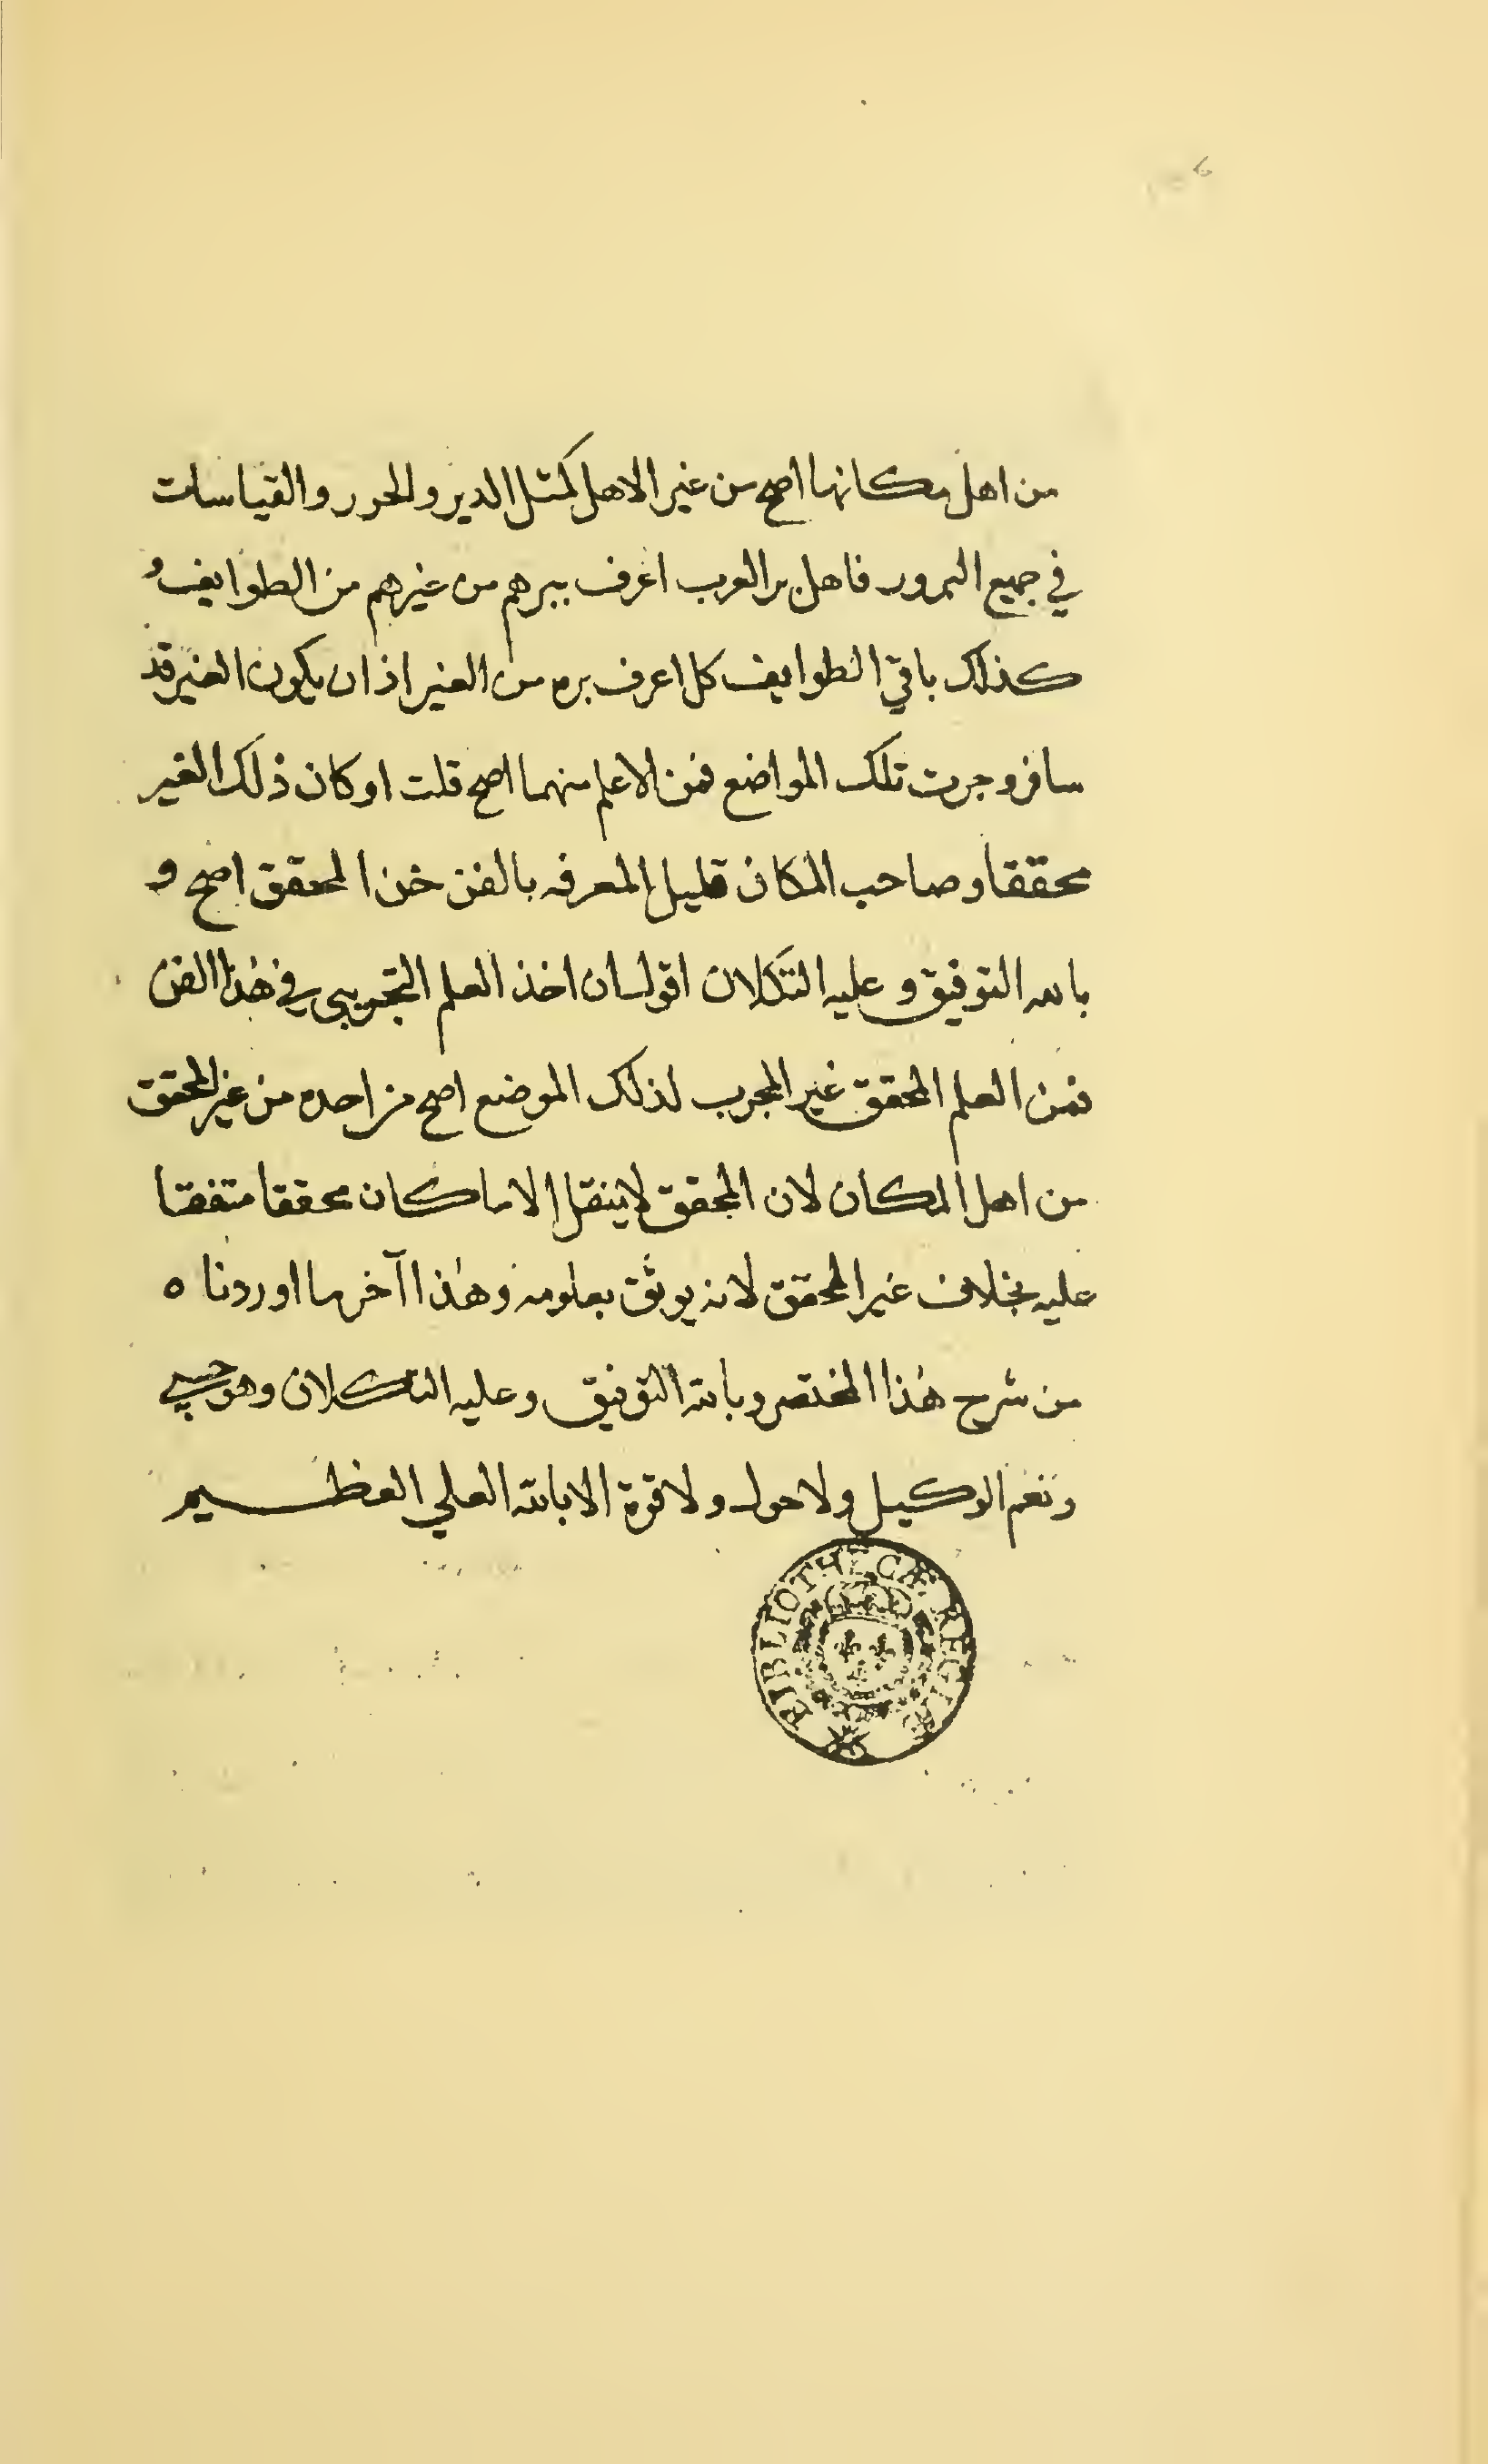 من اهل مكانها اصح من غير الاهل كمثل الدير والحرر والقياسات
في جميع البرور فاهل بر العرب اعرف ببرهم من غيرهم من الطوايف و
كذلك باقي الطوايف كل اعرف بره من الغير اذ ان يكون الغير قد
سافر وجرب تلك المواضع فمن الاعلم منهما اصح قلت او كان ذلك الغير
محققا وصاحب المكان قليل المعرفه بالفن خن المحقق اصح و
بالله التوفيق وعليه التكلان اقول ان اخذ العلم التجريبي في هذا الفن
فمن العلم المحقق غير المجرب لذلك الموضع اصح من احده من غير المحقق
من اهل المكان لان المحقق لا ينقل الا ما كان محققا متفقا
عليه بخلاف غير المحقق لانه يوثق بعلومه وهذا آخر ما اوردناه
من شرح هذا المختصر وبالله التوفيق وعليه التكلان وهو حسبي
ونعم الوكيل ولا حول ولا قوة الا بالله العلي العظيم
BIBLIOTHECÆ REGIÆ